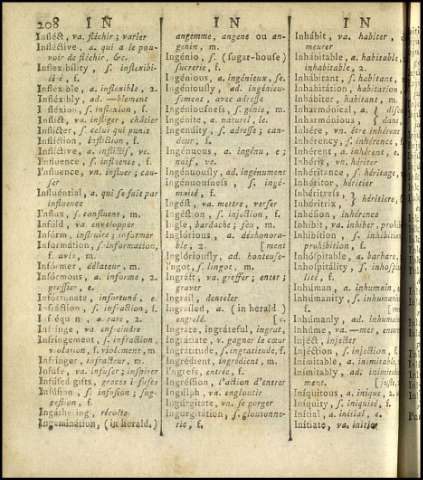 208 I N
I N
I N
Inflect, va. fléchir; varier
Inflective, a. qui a le pou-
voir de fléchir, &c.
Inflexibility, s. inflexibi-
lité, f.
Inflexible, a. inflexible, 2.
Inflexibly, ad. —blement
Inflexion, s. inflexion, f.
Inflict, va. infliger, châtier
Inflicter, s. celui qui punit
Infliction, infliction, f.
Inflictive, a. inflictif, ve.
Influence, s. influence, f.
Influence, vn. influer; cau-
ser
Influential, a. qui se fait par
influence
Influx, s. confluent, m.
Infold, va envelopper
Inform, instruire; informer
Information, s. information,
f. avis, m.
Informer, délateur, m.
Informous, a. informe, 2.
grossier, e.
Infortunate, infortuné, e.
Infraction, s. infraction, f.
Infrequent, a. rare, 2.
Infringe, va enfreindre
Infringement, s. infraction,
violation, f. violement, m.
Infringer, infracteur, m.
Infuse, va. infuser; inspirer
Infused gifts, graces infuses
Infusion, s. infusion; sug-
gestion, f.
Ingathering, récolte
Ingemination, (in herald.)
angemme, angene ou an-
genin, m.
Ingénio, s. (sugar-house)
sucrerie, f.
Ingénious, a. ingénieux, se.
Ingéniously, ad. ingénieu-
sement, avec adresse
Ingéniousness, s. génie, m.
Ingénite, a. naturel, le.
Ingenuity, s. adresse; can-
deur, f.
Ingénuous, a. ingénu, e;
naïf, ve.
Ingénuously, ad. ingénument
Ingénuousness, s. ingé-
nuité, f.
Ingést, va. mettre, verser
Ingéstion, s. injection, f.
Ingle, bardache; feu, m.
Inglórious, a. déshonora-
ble, 2. [ment
Inglóriously, ad. honteuse-
Ingot, s. lingot, m.
Ingráft, va. greffer; enter;
graver
Ingrail, denteler
Ingrailed, a. (in herald)
engrelé. [e.
Ingrate, ingráteful, ingrat,
Ingratiate, v. gagner le cœur
Ingratitude, s. ingratitude, f.
Ingrédient, ingrédient, m.
Ingress, entrée, f.
Ingréssion, l'action d'entrer
Ingulph, va. engloutir
Ingúrgitate, vn. se gorger
Ingurgitation, s. gloutonne-
rie, f.
Inhábit, va. habiter,
meurer
Inhábitable, a. habitable,
inhabitable, 2.
Inhábitant, s. habitant,
Inhabitátion, habitation,
Inhábiter, s. habitant, m
Inharmónical, a.
Inharmónious,
Inhére, vn. être inhérent
Inhérency, s. inhérence,
Inhérent, a. inhérent, e.
Inhérit, vn. hériter
Inhéritance, s. héritage,
Inhéritor, héritier
Inhéritress,
Inhéritrix,
Inhésion, inhérence
Inhíbit, va. inhiber, prohib
Inhibítion, s. inhibition
prohibition, f.
Inhóspitable, a. barbare,
Inhospitálity, s. inhospi
lité, f.
Inhúman, a. inhumain, e
Inhumánity, s. inhumanité
f.
Inhúmanly, ad. inhumain
Inhúme, va. —mer, enter
Injéct, injecter
Injéction, s. injection, f.
Inimitable, a. inimitable,
Inimitably, ad. inimitable
ment. [just.
Iníquitous, a. inique, 2.
Iníquity, s. iniquité, f.
Inítial, a. initial, e.
Inítiate, va. initier